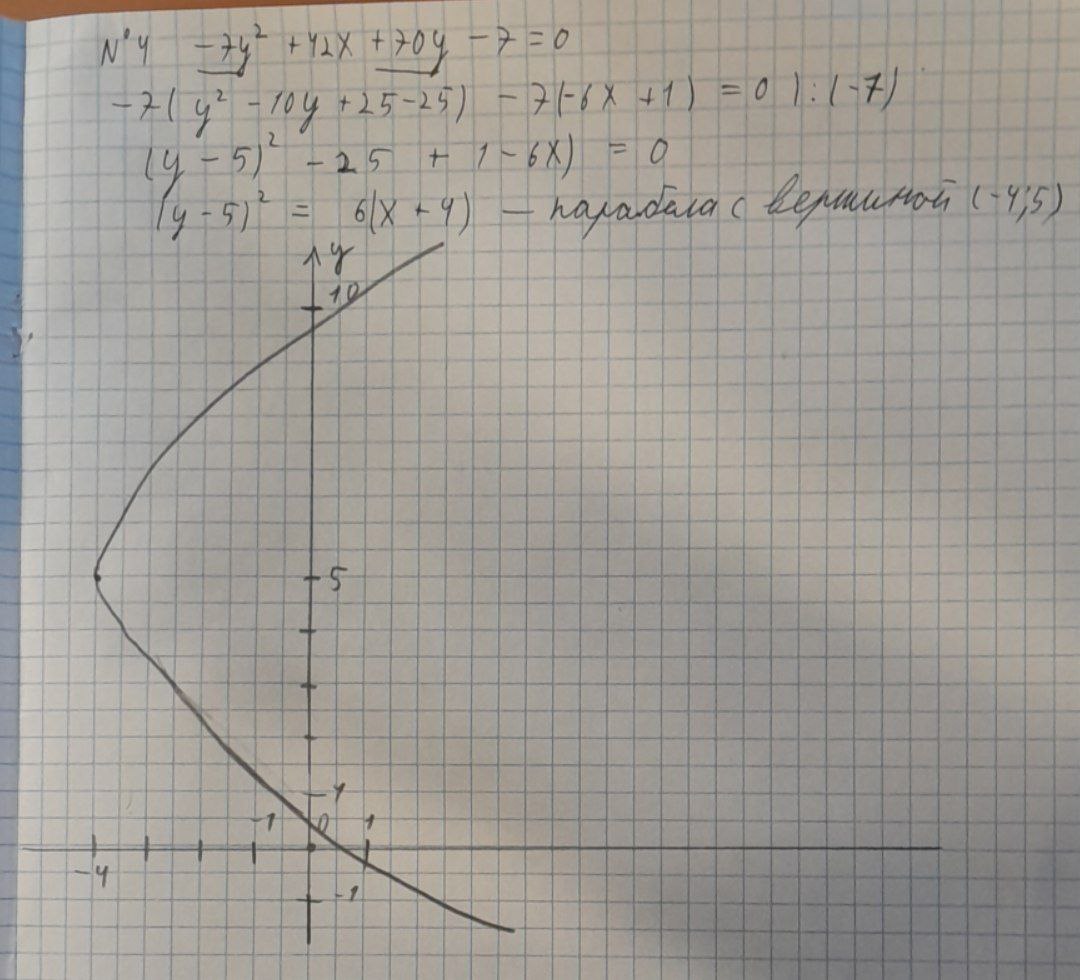 N°4 -7y² + 42x + 70y - 7 = 0
-7(y² - 10y + 25 - 25) - 7(-6x + 1) = 0 | : (-7)
(y - 5)² - 25 + 1 - 6x) = 0
(y - 5)² = 6(x + 4) — парабола с вершиной (-4; 5)
y
10
5
1
-1 0 1
-4
-1